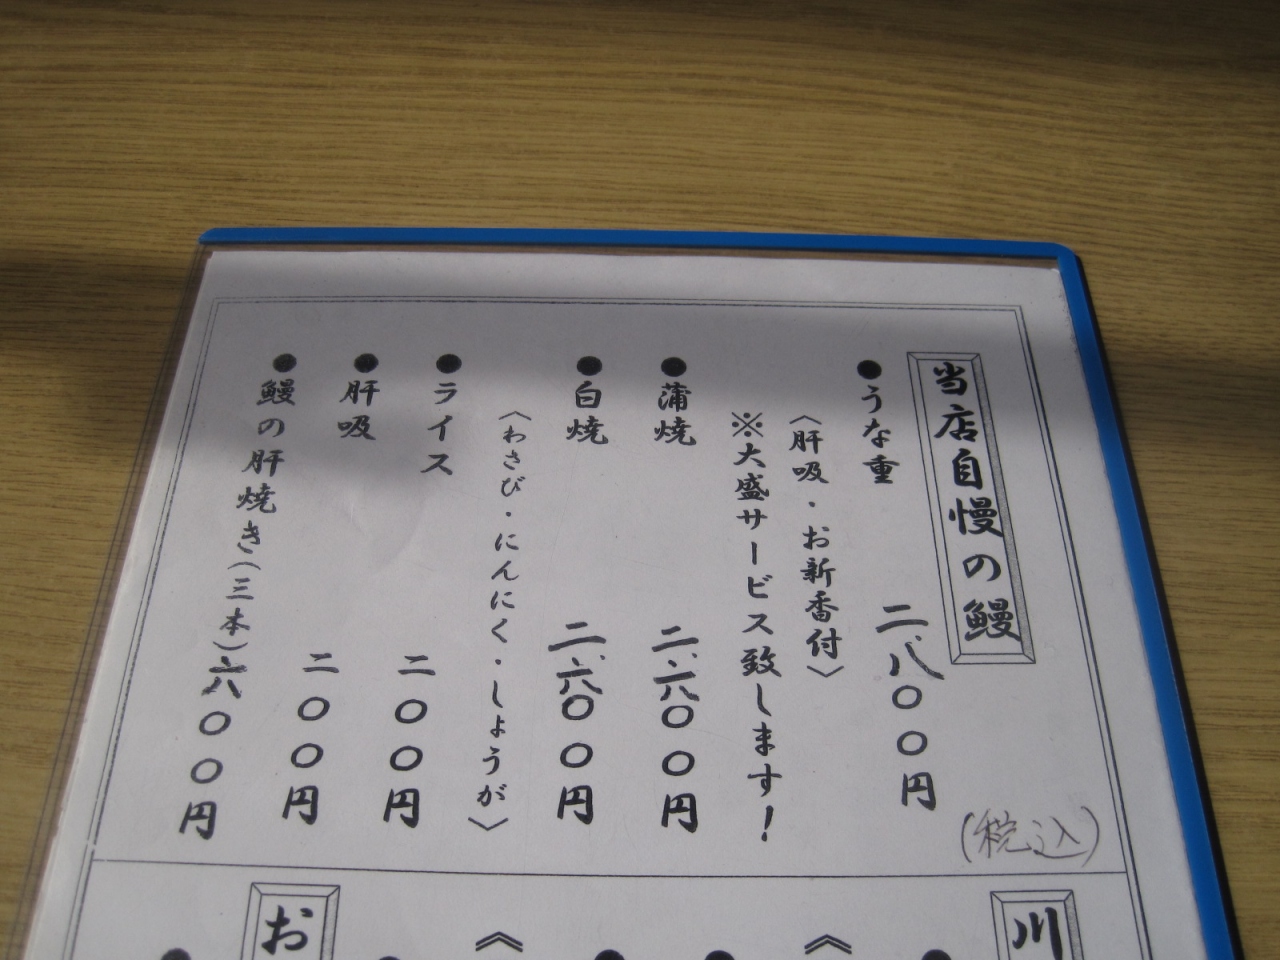 当店自慢の鰻
●うな重 二、八〇〇円
(税込)
〈肝吸・お新香付〉
※大盛サービス致します!
●蒲焼 二、六〇〇円
●白焼 二、六〇〇円
〈わさび・にんにく・しょうが〉
●ライス 二〇〇円
●肝吸 二〇〇円
●鰻の肝焼き(三本)六〇〇円
川
お